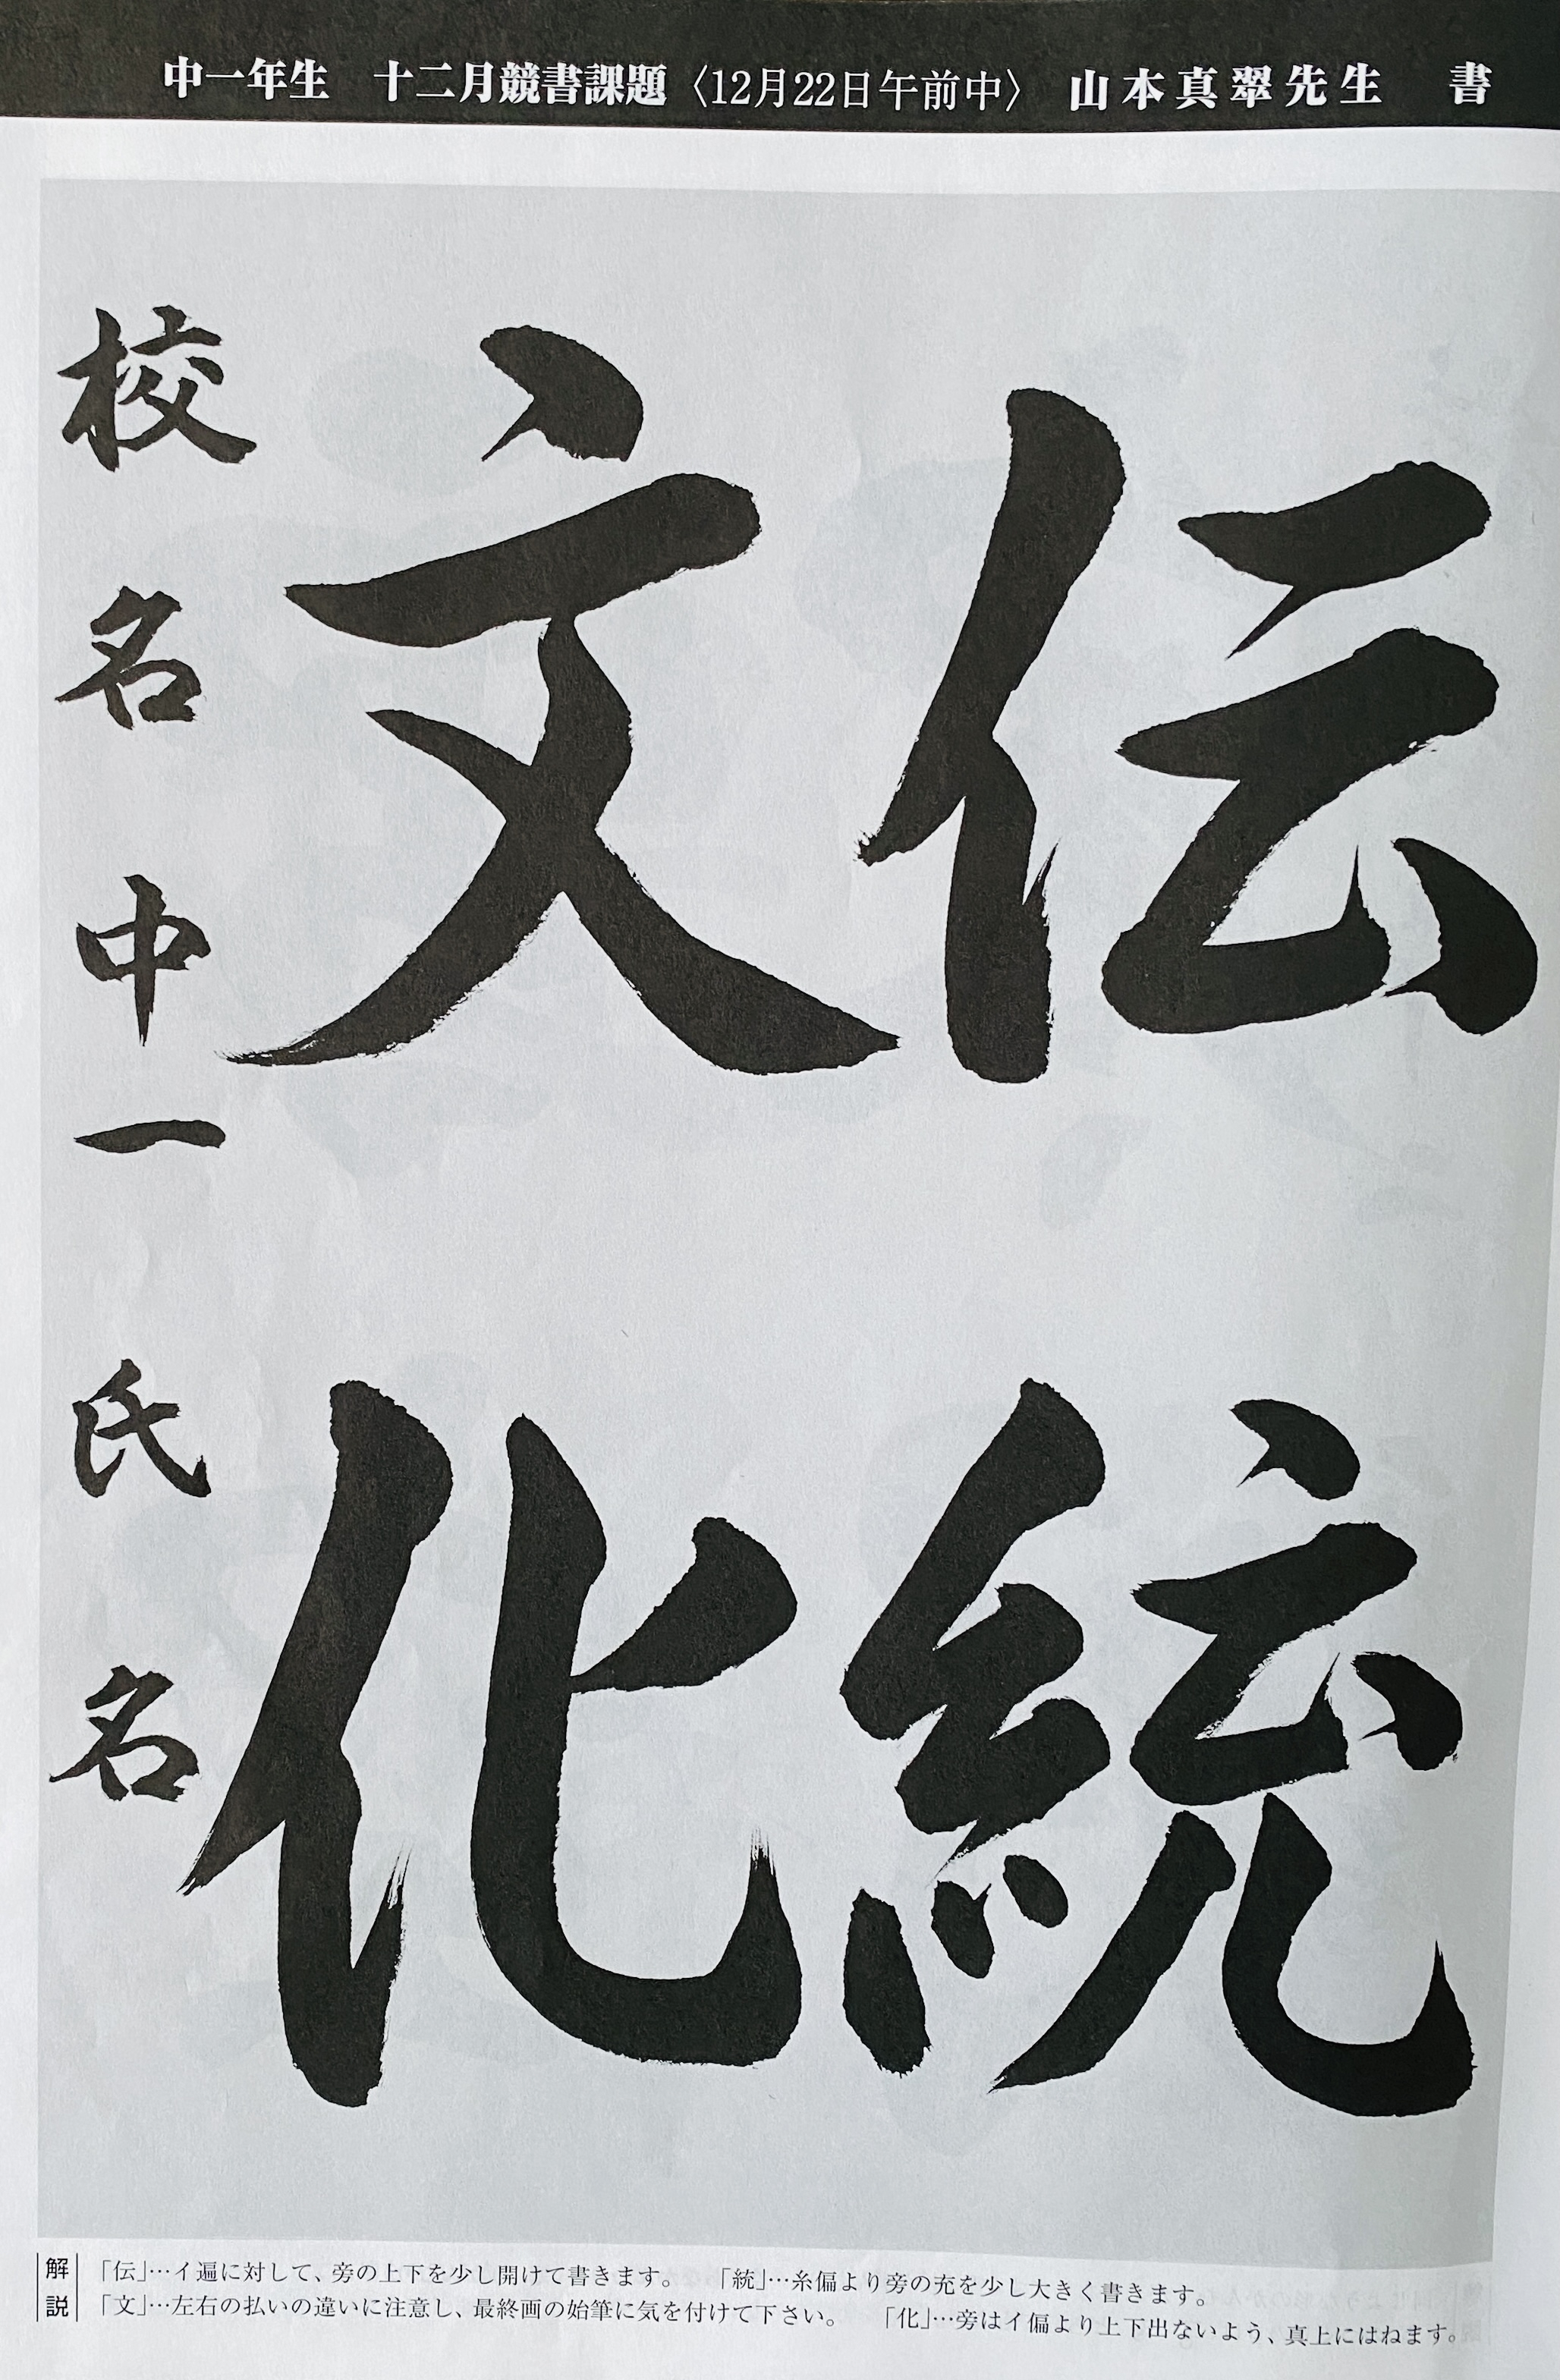 中一年生 十二月競書課題〈12月22日午前中〉 山本真翠先生 書
伝統
文化
校名中一 氏名
解説
「伝」…イ遍に対して、旁の上下を少し開けて書きます。 「統」…糸偏より旁の充を少し大きく書きます。
「文」…左右の払いの違いに注意し、最終画の始筆に気を付けて下さい。 「化」…旁はイ偏より上下出ないよう、真上にはねます。